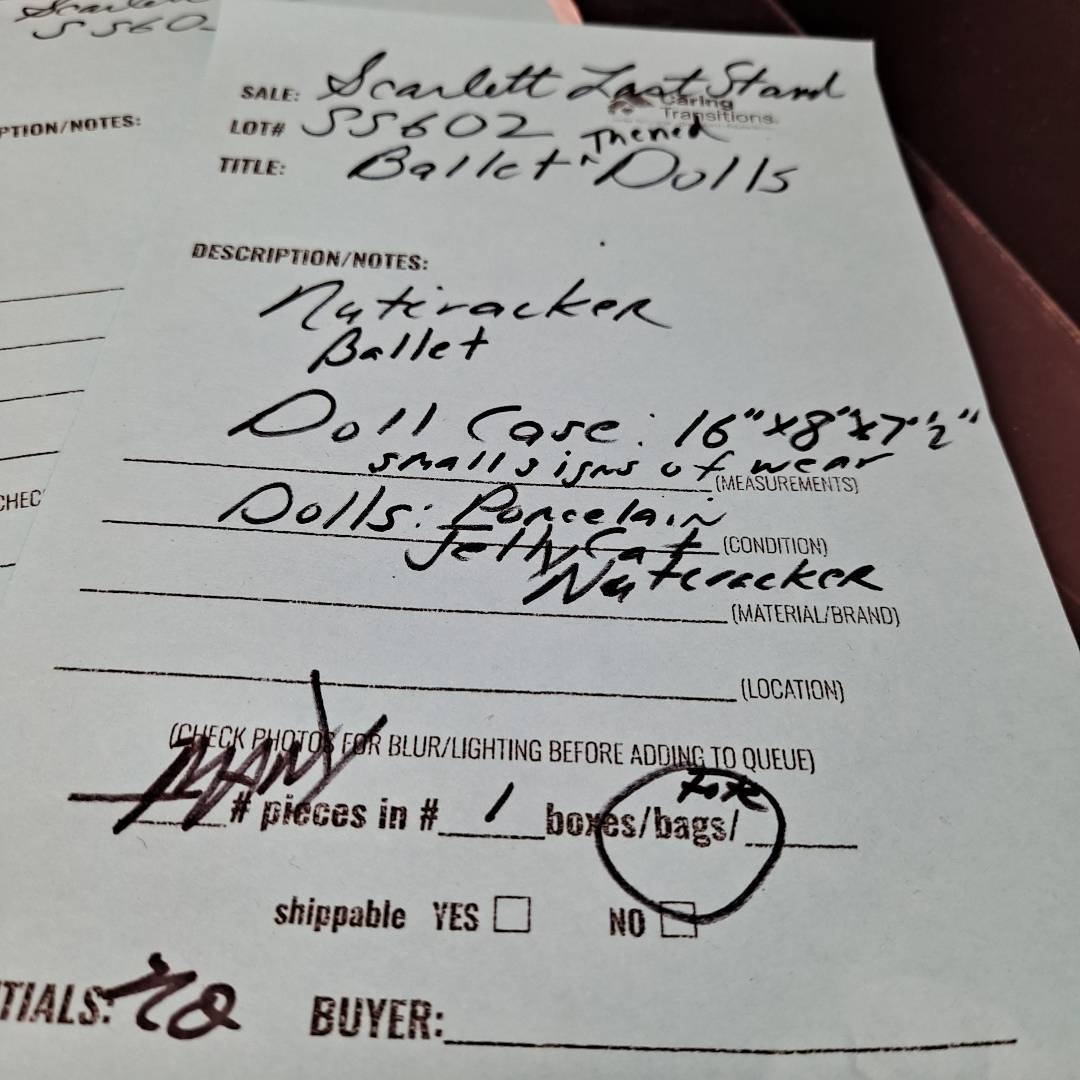 SS60
PTION/NOTES:
CHEC
SALE: Scarlett Last Stand
Caring
Transitions
LOT# SS602
TITLE: Ballet ^ Themed Dolls
DESCRIPTION/NOTES:
Nutcracker
Ballet
Doll Case: 16"x8"x7 1/2"
small signs of wear
(MEASUREMENTS)
Dolls: Porcelain
JellyCat (CONDITION)
Nutcracker
(MATERIAL/BRAND)
(LOCATION)
(CHECK PHOTOS FOR BLUR/LIGHTING BEFORE ADDING TO QUEUE)
MANY # pieces in # 1 boxes/bags/ tote
shippable YES NO
TIALS: BUYER: